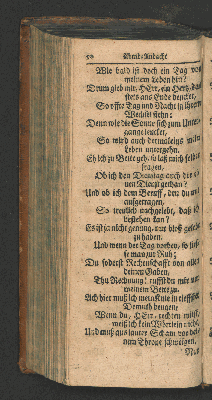 50 Abend-Andacht
Wie bald ist doch ein Tag von
meinem Leben hin?
Drum gieb mir, HErr, ein Hertz, das
stets ans Ende dencket,
So offte Tag und Nacht in ihrem
Wechsel stehn:
Denn wie die Sonne sich zum Unter-
gange lencket,
So wird auch dermaleins mein
Leben untergehn.
Eh ich zu Bette geh, so laß mich selber
fragen,
Ob ich den Dienstag auch die
nen Dienst gethan?
Und ob ich dem Beruff, den du mir
auffgetragen,
So treulich nachgelebt, daß ich
bestehen kan?
Es ist ja nicht genung, nur bloß gelebt
zu haben.
Und wenn der Tag vorbey, so
man zur Ruh;
Du foderst Rechenschafft von allen
deinen Gaben,
Die Rechnung ruffst du mir
meinem Bette zu.
Ach hier muß ich mein Knie in tieffster
Demuth beugen:
Wenn du, HErr, rechten wilst,
weiß ich kein Wörtlein nicht,
Und muß aus lauter Scham vor dei-
nem Throne schweigen,